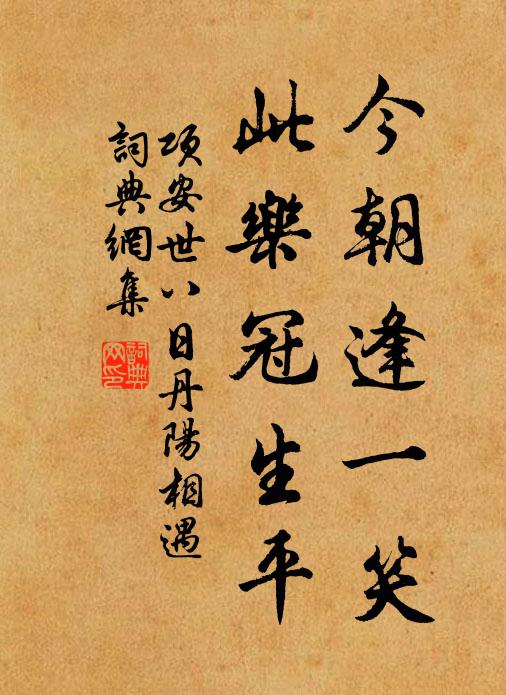 今朝逢一笑
此樂冠生平
項安世八日丹陽相遇
詞典網集
詞典
网印